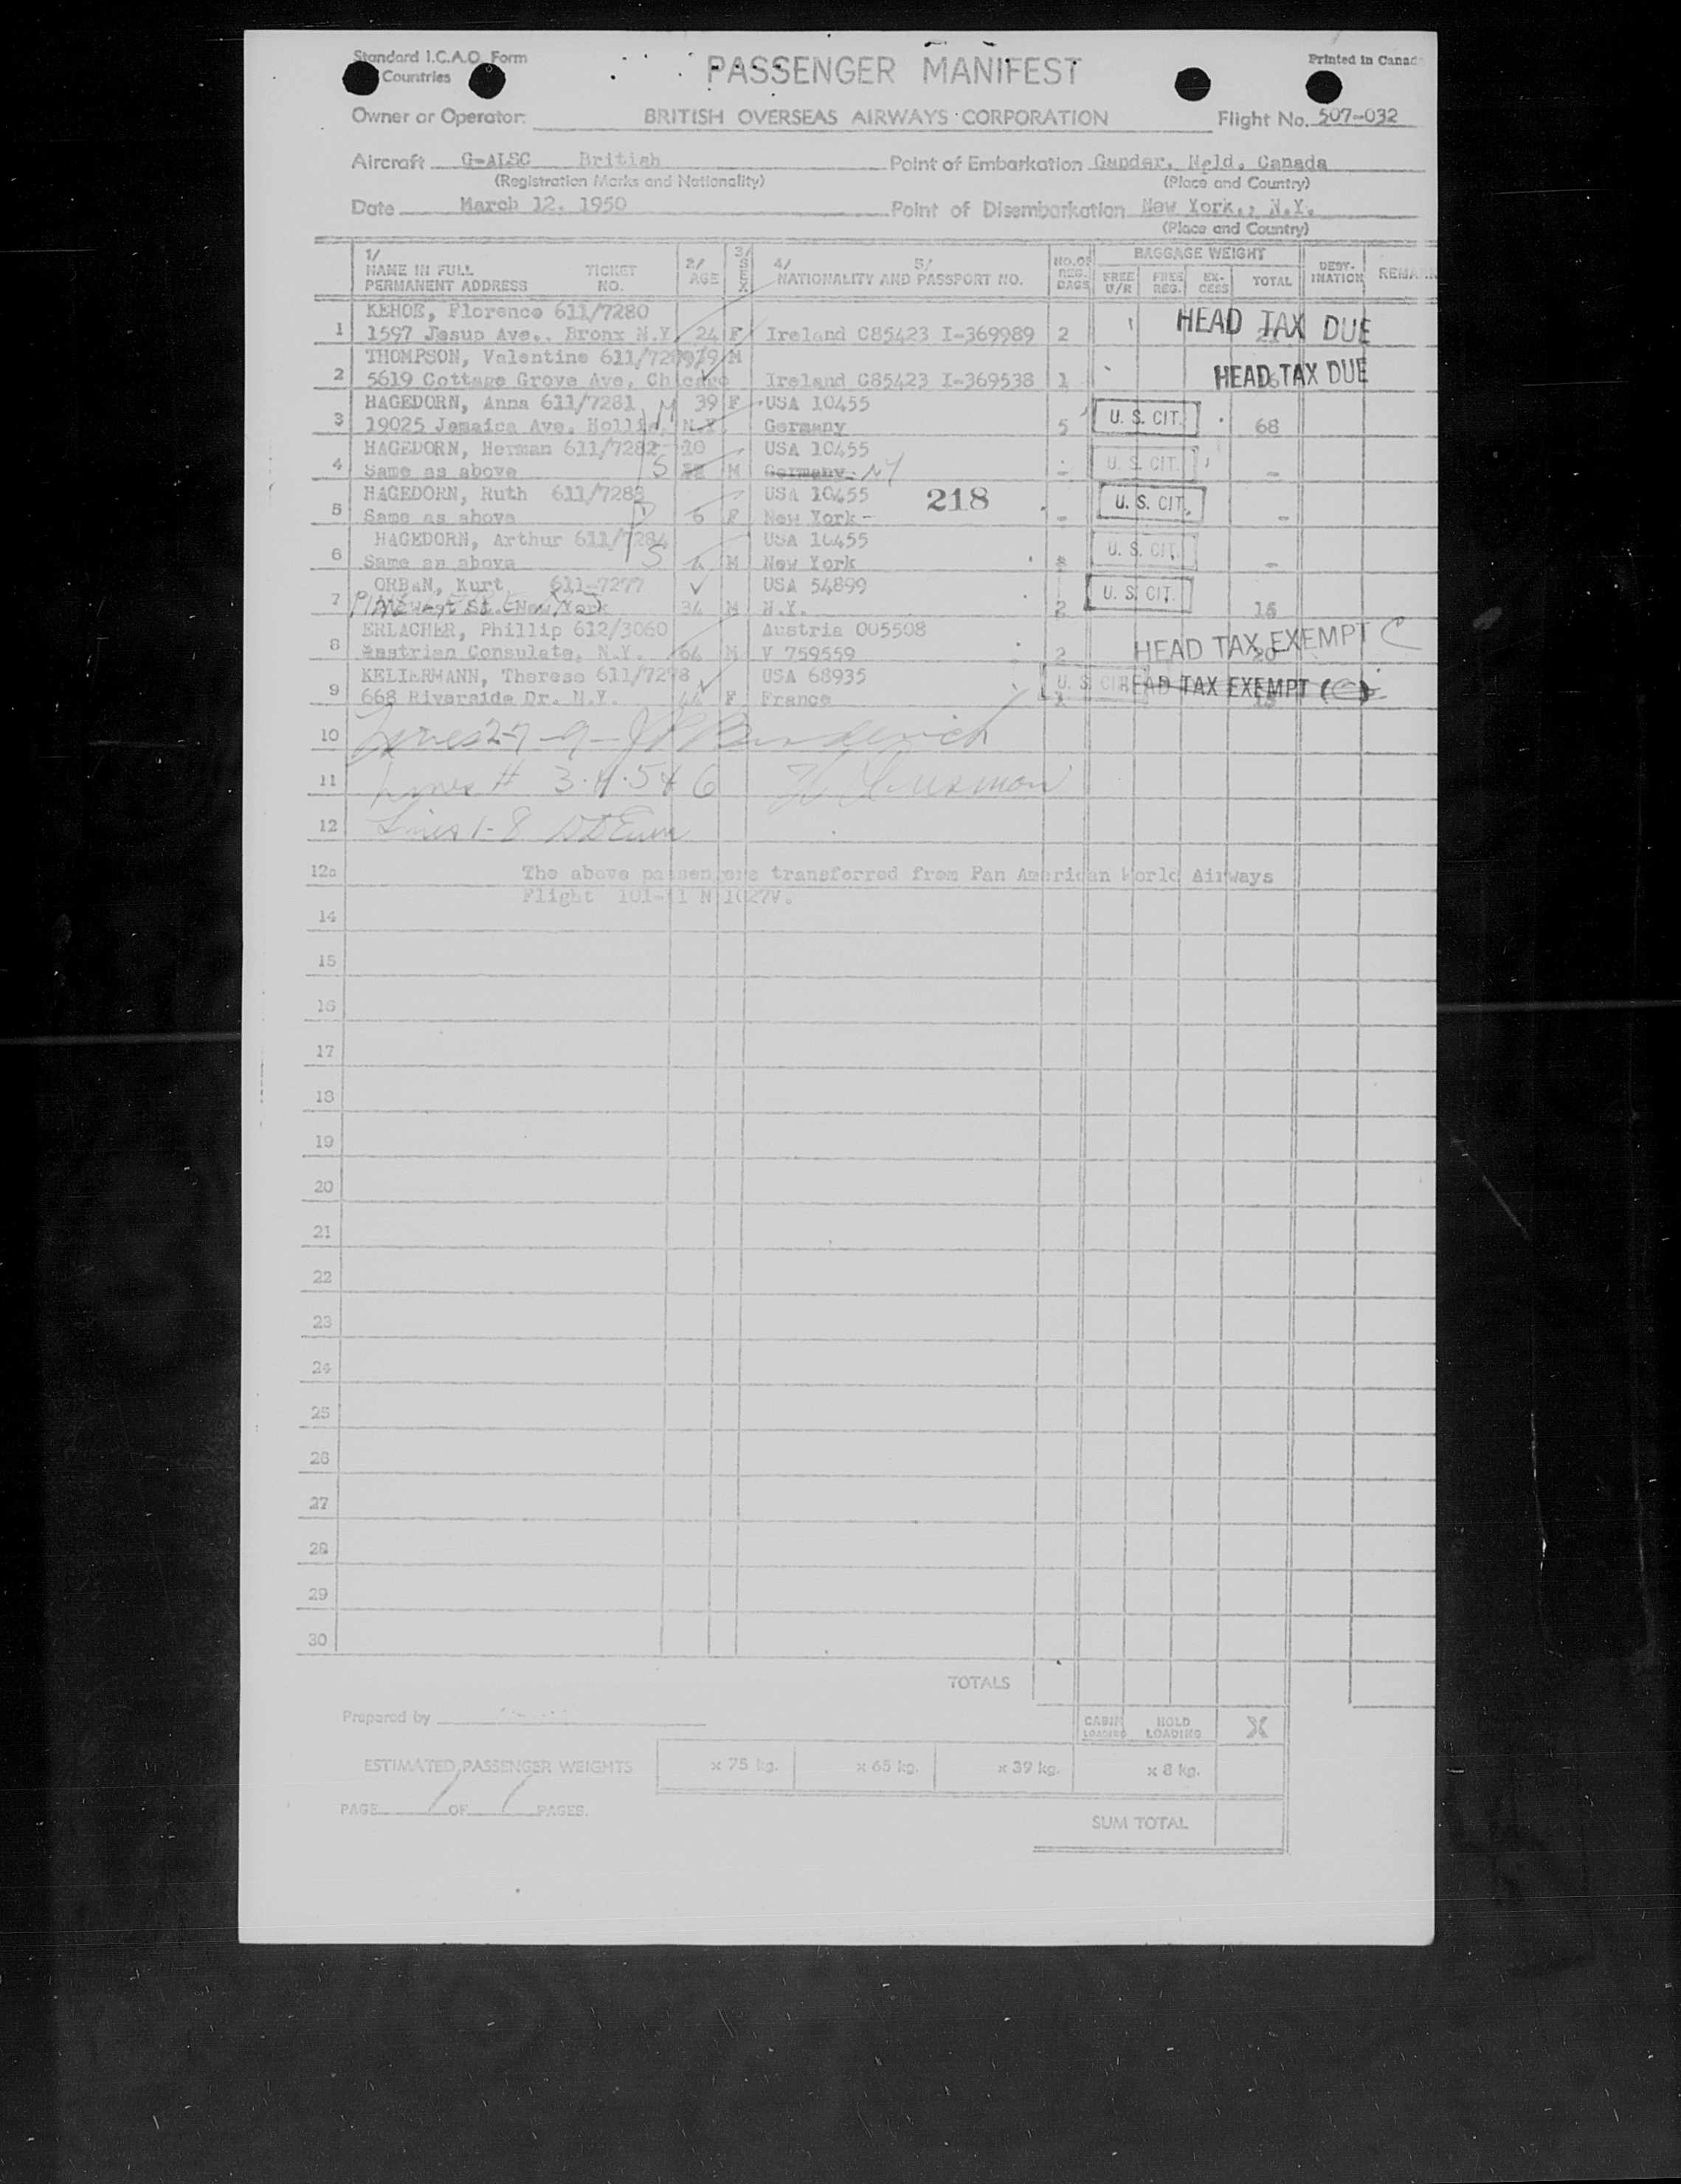 Standard I.C.A.O. Form
Countries
PASSENGER MANIFEST
Printed in Canad
Owner or Operator: BRITISH OVERSEAS AIRWAYS CORPORATION Flight No. 507-032
Aircraft G-ALSC British Point of Embarkation Gander, Nfld. Canada
(Registration Marks and Nationality) (Place and Country)
Date March 12. 1950 Point of Disembarkation New York., N.Y.
(Place and Country)
1/ NAME IN FULL PERMANENT ADDRESS TICKET NO. 2/ AGE 3/ SEX 4/ 5/ NATIONALITY AND PASSPORT NO. NO. OF REG. BAGS BAGGAGE WEIGHT FREE U/R FREE REG. EX-CESS TOTAL DEST-INATION REMA
KEHOE, Florence 611/7280
1 1597 Jesup Ave., Bronx N.Y. 24 F Ireland C85423 I-369989 2 HEAD TAX DUE
THOMPSON, Valentine 611/72 M
2 5619 Cottage Grove Ave, Chicago Ireland C85423 I-369538 1 HEAD TAX DUE
HAGEDORN, Anna 611/7281 M 39 F USA 10455
3 19025 Jamaica Ave. Hollis, N.Y. Germany 5 U. S. CIT. 68
HAGEDORN, Herman 611/7282 10 USA 10455
4 Same as above S M Germany NY - U. S. CIT. -
HAGEDORN, Ruth 611/7283 USA 10455 218
5 Same as above 6 F New York - - U. S. CIT. -
HAGEDORN, Arthur 611/7284 USA 10455
6 Same as above S 4 M New York U. S. CIT. -
ORBAN, Kurt 611-7277 USA 54899
7 West St. New York 34 M N.Y. 2 U. S. CIT. 16
ERLACHER, Phillip 612/3060 Austria 005508
8 Austrian Consulate, N.Y. 64 M V 759559 2 HEAD TAX EXEMPT C 20
KELLERMANN, Therese 611/7278 USA 68935
9 668 Riverside Dr. N.Y. 44 F France U. S. CIT HEAD TAX EXEMPT (C)
10 Lines 2-7-9-
11 Lines # 3.4.5 & 6
12 Lines 1-8
12a The above passengers transferred from Pan American World Airways
Flight 101-11 N 1027V.
14
15
16
17
18
19
20
21
22
23
24
25
26
27
28
29
30
TOTALS
Prepared by
CABIN LOADING HOLD LOADING X
ESTIMATED PASSENGER WEIGHTS x 75 kg. x 65 kg. x 39 kg. x 8 kg.
PAGE 1 OF 1 PAGES.
SUM TOTAL